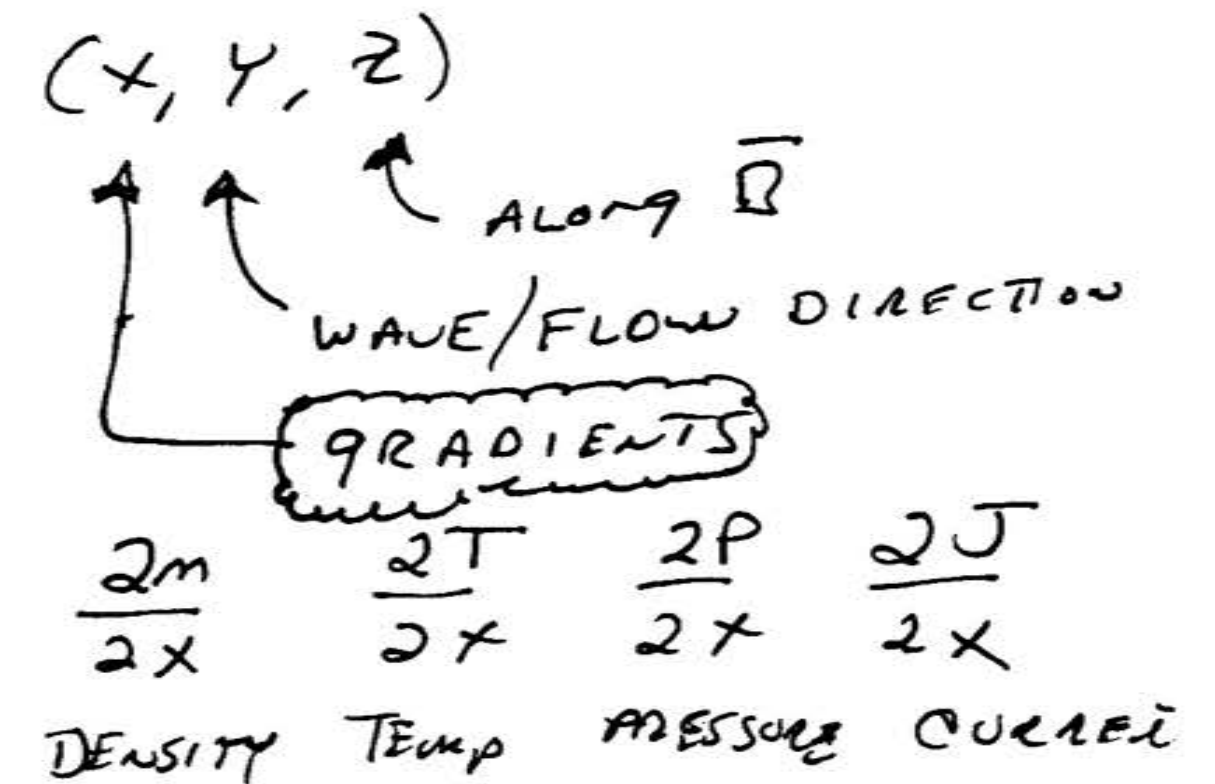 (X, Y, Z)
ALONG B̅
WAVE/FLOW DIRECTION
GRADIENTS
∂n/∂x ∂T/∂x ∂P/∂x ∂J/∂x
DENSITY TEMP PRESSURE